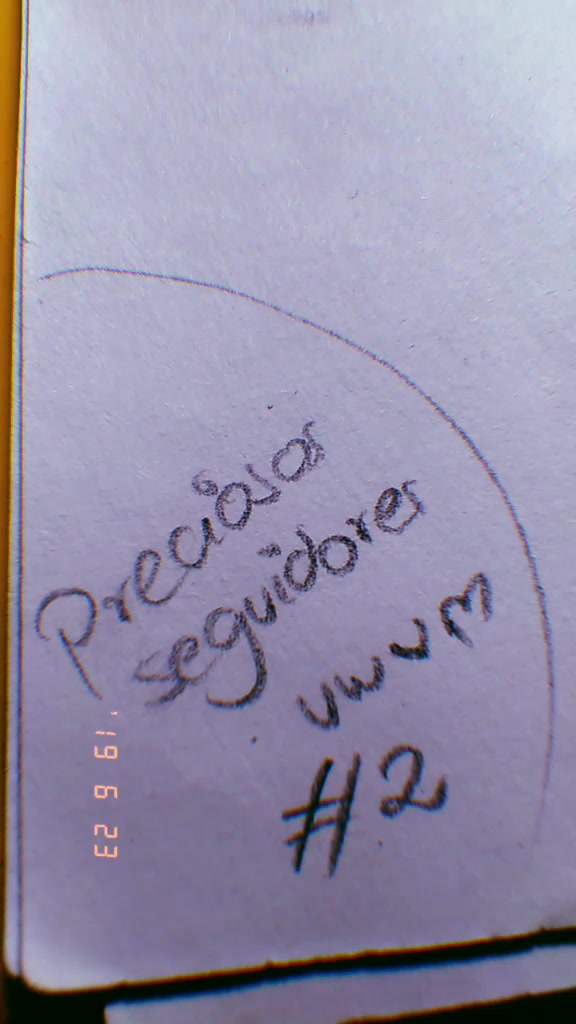 Preciosos
seguidores
uwum
#2
'19 6 23